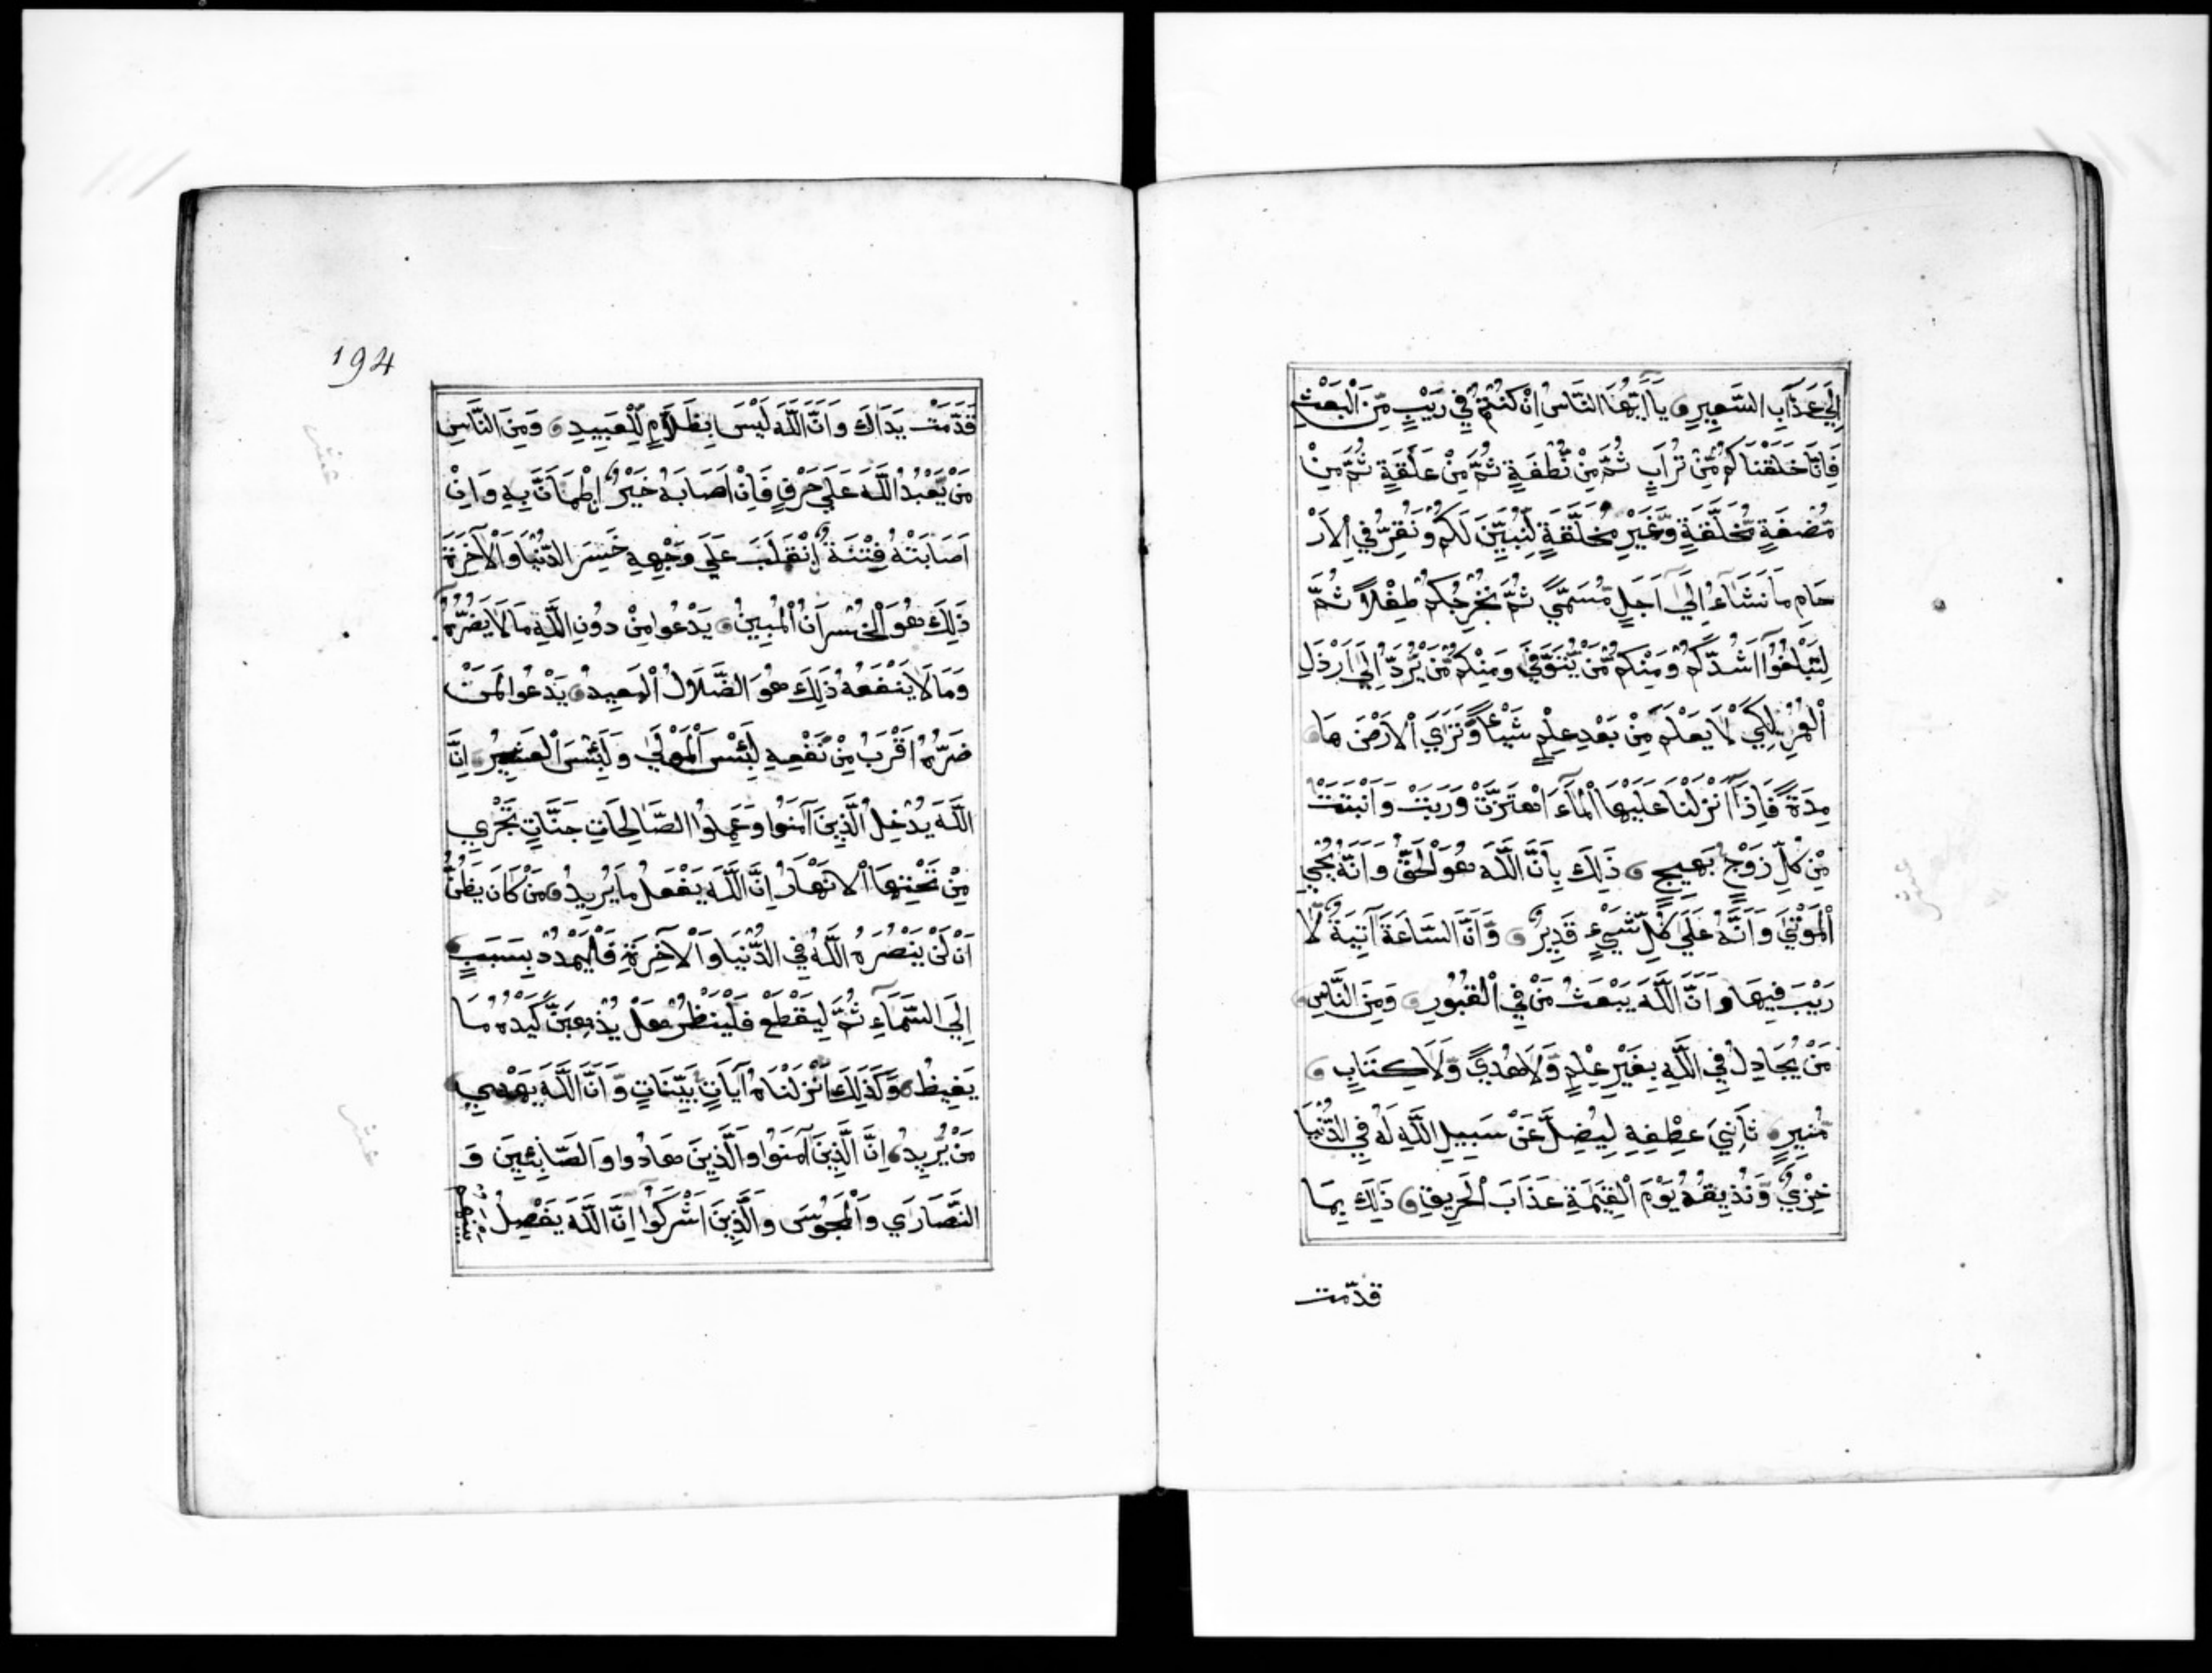 اِلَي عَذَابِ السَّعِيرِ يَآ اَيُّهَا النَّاسُ اِنْ كُنْتُمْ فِي رَيْبٍ مِّنَ الْبَعْثِ
فَاِنَّا خَلَقْنَاكُمْ مِّنْ تُرَابٍ ثُمَّ مِنْ نُّطْفَةٍ ثُمَّ مِنْ عَلَقَةٍ ثُمَّ مِنْ
مُّضْغَةٍ مُّخَلَّقَةٍ وَّغَيْرِ مُخَلَّقَةٍ لِّنُبَيِّنَ لَكُمْ وَنُقِرُّ فِي الْاَرْ
حَامِ مَا نَشَآءُ اِلَيٓ اَجَلٍ مُّسَمًّي ثُمَّ نُخْرِجُكُمْ طِفْلاً ثُمَّ
لِتَبْلُغُوٓا اَشُدَّكُمْ وَمِنْكُمْ مَّنْ يُّتَوَفَّي وَمِنْكُمْ مَّنْ يُّرَدُّ اِلَيٓ اَرْذَلِ
الْعُمُرِ لِكَيْ لَا يَعْلَمَ مِنْ بَعْدِ عِلْمٍ شَيْئاً وَّتَرَي الْاَرْضَ هَا
مِدَةً فَاِذَآ اَنْزَلْنَا عَلَيْهَا الْمَآءَ اهْتَزَّتْ وَرَبَتْ وَاَنْبَتَتْ
مِنْ كُلِّ زَوْجٍ بَهِيجٍ ذَلِكَ بِاَنَّ اللَّهَ هُوَ الْحَقُّ وَاَنَّهُ يُحْيِ
الْمَوْتَي وَاَنَّهُ عَلَي كُلِّ شَيْءٍ قَدِيرٌ وَّاَنَّ السَّاعَةَ آتِيَةٌ لَّا
رَيْبَ فِيهَا وَاَنَّ اللَّهَ يَبْعَثُ مَنْ فِي الْقُبُورِ وَمِنَ النَّاسِ
مَنْ يُجَادِلُ فِي اللَّهِ بِغَيْرِ عِلْمٍ وَّلَا هُدًي وَّلَا كِتَابٍ
مُّنِيرٍ ثَانِيَ عِطْفِهِ لِيُضِلَّ عَنْ سَبِيلِ اللَّهِ لَهُ فِي الدُّنْيَا
خِزْيٌ وَّنُذِيقُهُ يَوْمَ الْقِيَمَةِ عَذَابَ الْحَرِيقِ ذَلِكَ بِمَا
قدّمت
194
قَدَّمَتْ يَدَاكَ وَاَنَّ اللَّهَ لَيْسَ بِظَلَّامٍ لِّلْعَبِيدِ وَمِنَ النَّاسِ
مَنْ يَّعْبُدُ اللَّهَ عَلَي حَرْفٍ فَاِنْ اَصَابَهُ خَيْرٌ اِطْمَاَنَّ بِهِ وَاِنْ
اَصَابَتْهُ فِتْنَةٌ اِنْقَلَبَ عَلَي وَجْهِهِ خَسِرَ الدُّنْيَا وَالْآخِرَةَ
ذَلِكَ هُوَ الْخُسْرَانُ الْمُبِينُ يَدْعُوا مِنْ دُونِ اللَّهِ مَا لَا يَضُرُّهُ
وَمَا لَا يَنْفَعُهُ ذَلِكَ هُوَ الضَّلَالُ الْبَعِيدُ يَدْعُوا لَمَنْ
ضَرُّهُ اَقْرَبُ مِنْ نَّفْعِهِ لَبِئْسَ الْمَوْلَي وَلَبِئْسَ الْعَشِيرُ اِنَّ
اللَّهَ يُدْخِلُ الَّذِينَ آمَنُوا وَعَمِلُوا الصَّالِحَاتِ جَنَّاتٍ تَجْرِي
مِنْ تَحْتِهَا الْاَنْهَارُ اِنَّ اللَّهَ يَفْعَلُ مَا يُرِيدُ مَنْ كَانَ يَظُنُّ
اَنْ لَنْ يَنْصُرَهُ اللَّهُ فِي الدُّنْيَا وَالْآخِرَةِ فَلْيَمْدُدْ بِسَبَبٍ
اِلَي السَّمَآءِ ثُمَّ لِيَقْطَعْ فَلْيَنْظُرْ هَلْ يُذْهِبَنَّ كَيْدُهُ مَا
يَغِيظُ وَكَذَلِكَ اَنْزَلْنَاهُ آيَاتٍ بَيِّنَاتٍ وَّاَنَّ اللَّهَ يَهْدِي
مَنْ يُّرِيدُ اِنَّ الَّذِينَ آمَنُوا وَالَّذِينَ هَادُوا وَالصَّابِئِينَ وَ
النَّصَارَي وَالْمَجُوسَ وَالَّذِينَ اَشْرَكُوٓا اِنَّ اللَّهَ يَفْصِلُ